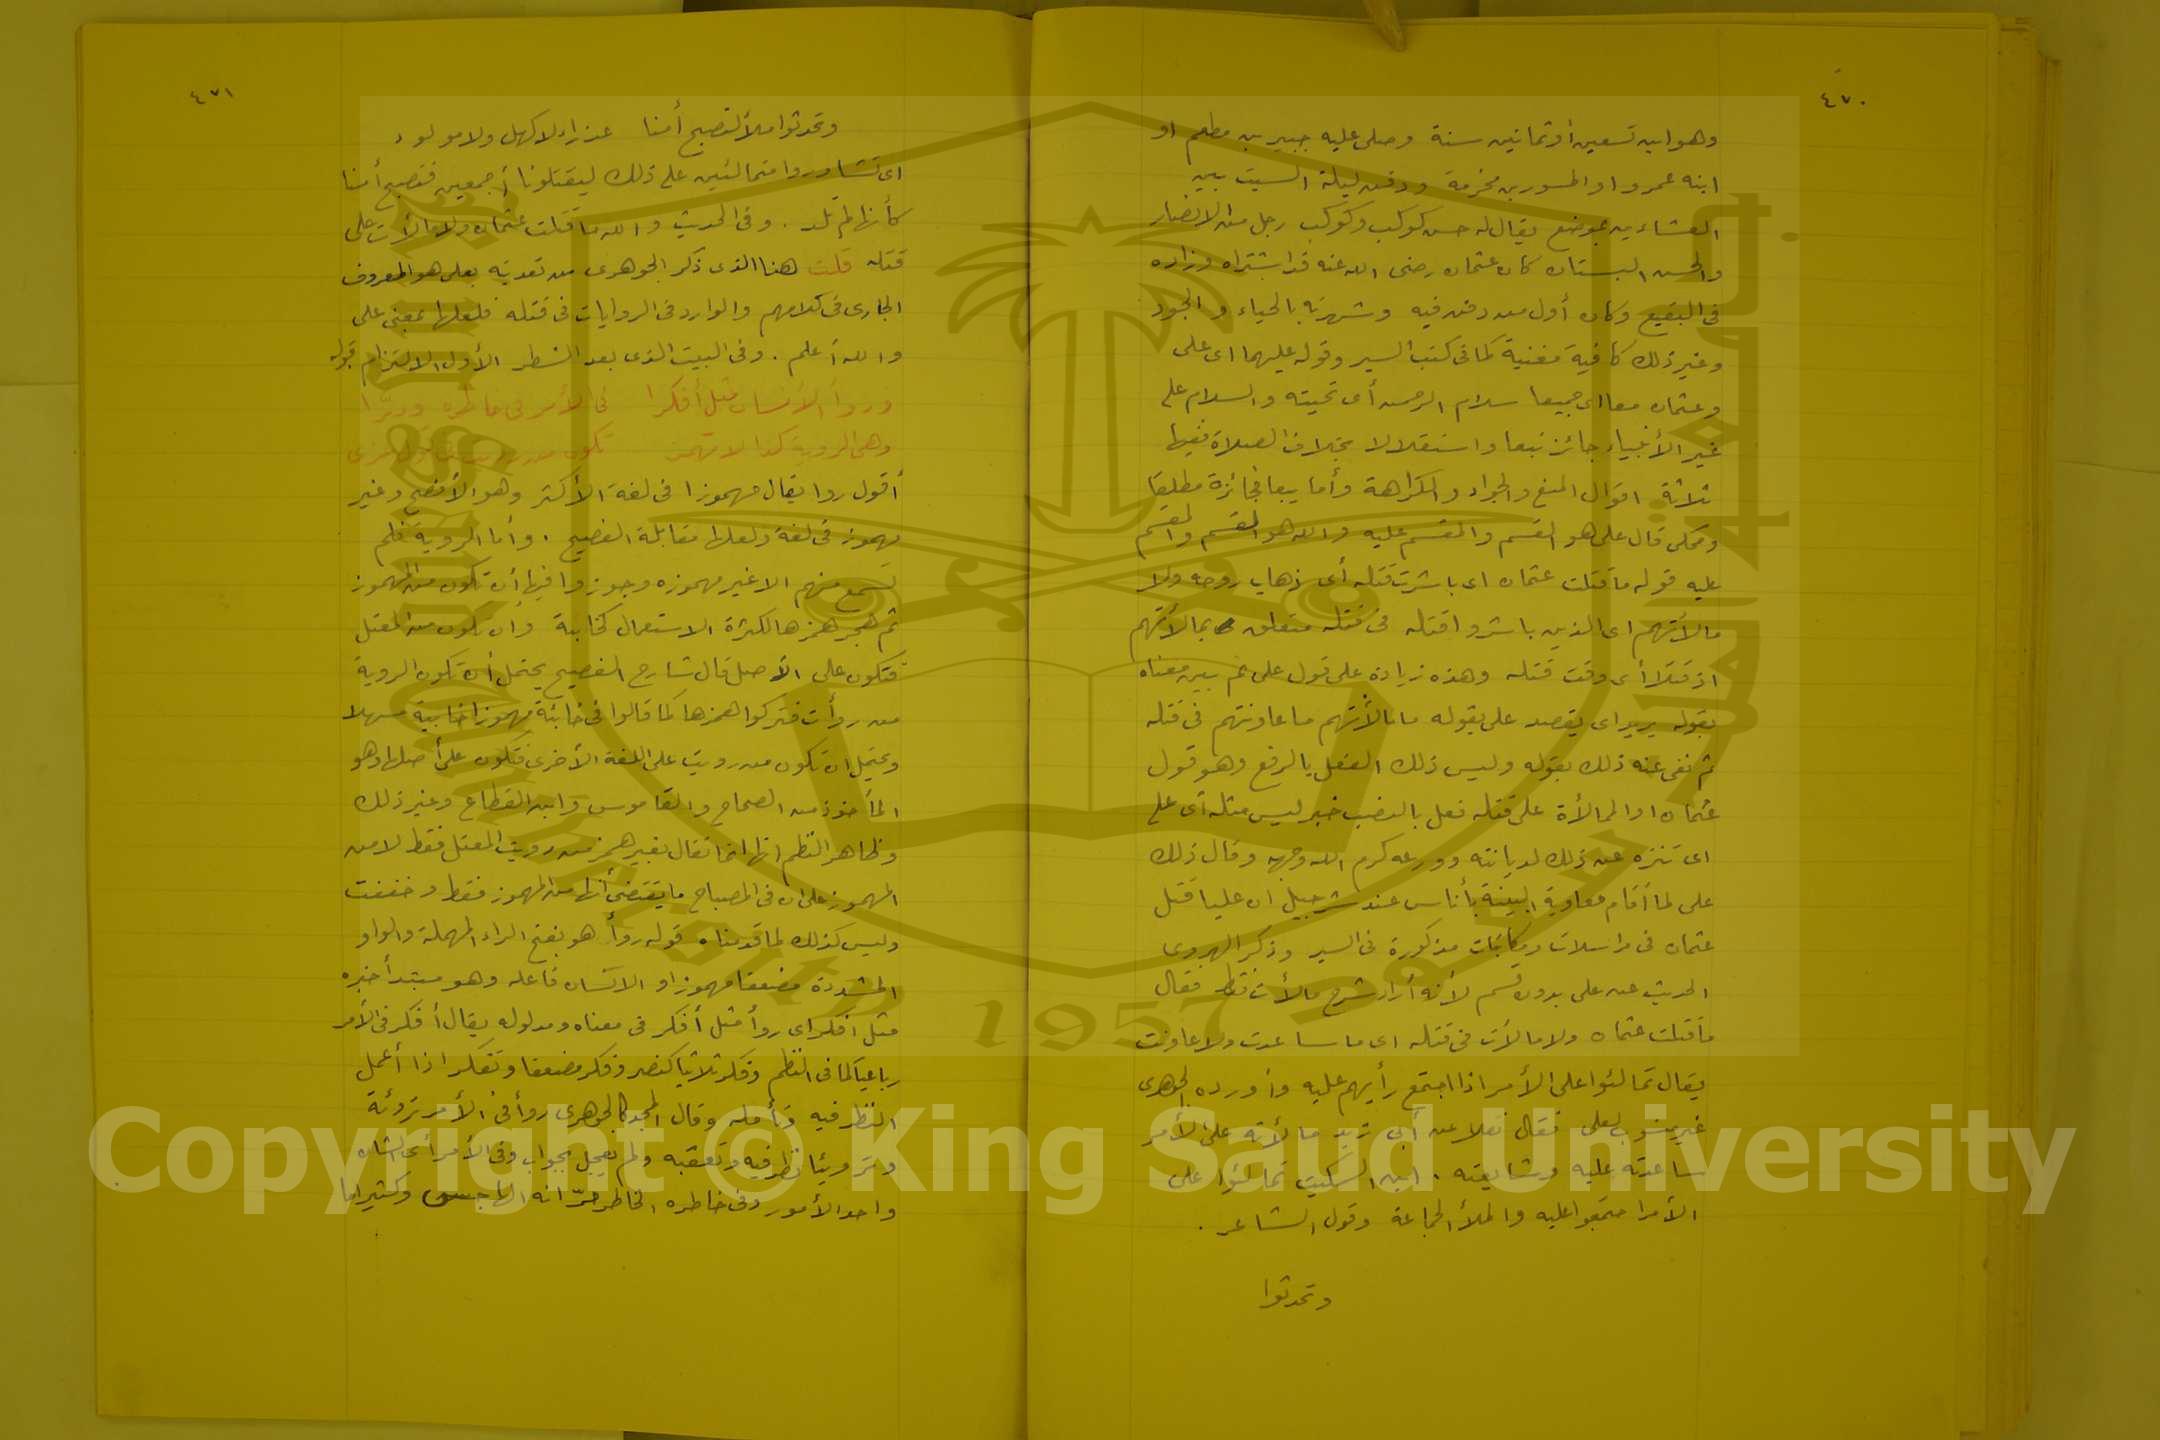 ٤٧٠
وهو ابن تسعين أو ثمانين سنة وصلى عليه جبير بن مطعم او
ابنه عمرو او المسور بن مخرمة ودفن ليلة السبت بين
العشاءين بموضع يقال له حسن كوكب وكوكب رجل من الانصار
والحسن البستان كان عثمان رضى الله عنه قد اشتراه وزاده
فى البقيع وكان أول من دفن فيه وشهرته بالحياء والجود
وغير ذلك كافية مغنية كما فى كتب السير وقوله عليهما اى على
وعثمان معا اى جميعا سلام الرحمن أى تحيته والسلام على
غير الأنبياء جائز تبعا واستقلالا بخلاف الصلاة ففيها
ثلاثة اقوال المنع والجواز والكراهة وأما تبعا فجائزة مطلقا
وحكى قال على هو القسم والمقسم عليه والله هو القسم والمقسم
عليه قوله ما قتلت عثمان اى باشرت قتله أى ذهاب روحه ولا
مالأتهم اى الذين باشروا قتله فى قتله متعلق بمالأتهم
اذ قتلا أى وقت قتله وهذه زيادة على قول على ثم بين معناه
بقوله يريد اى يقصد على بقوله ما مالأتهم ما عاونتهم فى قتله
ثم نفى عنه ذلك بقوله وليس ذلك الفعل بالرفع وهو قول
عثمان او الممالأة على قتله فعل بالنصب خبر ليس مثله أى على
اى تنزه عن ذلك لديانته وورعه كرم الله وجهه وقال ذلك
على لما أقام معاوية البينة بأناس عند شرحبيل ان عليا قتل
عثمان فى مراسلات ومكاتبات مذكورة فى السير وذكر الهروى
الحديث عن على بدون قسم لأنه أراد شرح مالأت فقط فقال
ما قتلت عثمان ولا مالأت فى قتله اى ما ساعدت ولا عاونت
يقال تمالئوا على الأمر اذا اجتمع رأيهم عليه وأورده الجوهرى
غير منسوب لعلى فقال نقلا عن أبى زيد مالأته على الأمر
ساعدته عليه وشايعته . ابن السكيت تمالئوا على
الأمر اجتمعوا عليه والملأ الجماعة وقول الشاعر .
وتحدثوا
٤٧١
وتحدثوا ملأ لتصبح أمنا عذراء لا كهل ولا مولود
اى تشاوروا متمالئين على ذلك ليقتلونا أجمعين فتصبح أمنا
كأنها لم تلد . وفى الحديث والله ما قتلت عثمان ولا مالأت على
قتله قلت هذا الذى ذكر الجوهرى من تعديته بعلى هو المعروف
الجارى فى كلامهم والوارد فى الروايات فى قتله فلعلها بمعنى على
والله أعلم . وفى البيت الذى بعد الشطر الأول الالتزام قوله
وروأ الانسان مثل أفكرا فى الأمر فى خاطره ودبرا
وهى الروية كذا لا تهمز تكون من
أقول روا يقال مهموزا فى لغة الأكثر وهو الأفصح وغير
مهموز فى لغة ولعلها مقابلة الفصيح . وأما الروية فلم
تسمع منهم الا غير مهموزه وجوزوا فيها أن تكون من المهموز
ثم هجر همزها لكثرة الاستعمال كخابية وان تكون من المعتل
فتكون على الأصل قال شارح الفصيح يحتمل أن تكون الروية
من روأت فتركوا همزها كما قالوا فى خابئة مهموزا خابية مسهلا
ويحتمل ان تكون من رويت على اللغة الأخرى فتكون على أصلها وهو
المأخوذ من الصحاح والقاموس وابن القطاع وغير ذلك
وظاهر النظم انها انما تقال بغير همز من رويت المعتل فقط لا من
المهموز على ان فى المصباح ما يقتضى أنها من المهموز فقط وخففت
وليس كذلك لما قدمناه قوله روأ هو بفتح الراء المهملة والواو
المشددة مضعفا مهموزا والانسان فاعله وهو مبتدأ خبره
مثل افكر اى روأ مثل أفكر فى معناه ومدلوله يقال أفكر فى الأمر
رباعيا كما فى النظم وفكر ثلاثيا كنصر وفكر مضعفا وتفكر اذا أعمل
النظر فيه وتأمله وقال المجد كالجوهرى روأ فى الأمر تروئة
وترويئا نظر فيه وتعقبه ولم يعجل بجواب وفى الأمر أى الشان
واحد الأمور وفى خاطره الخاطر مرّ انه الهاجس وكثيرا ما
Copyright © King Saud University
1957